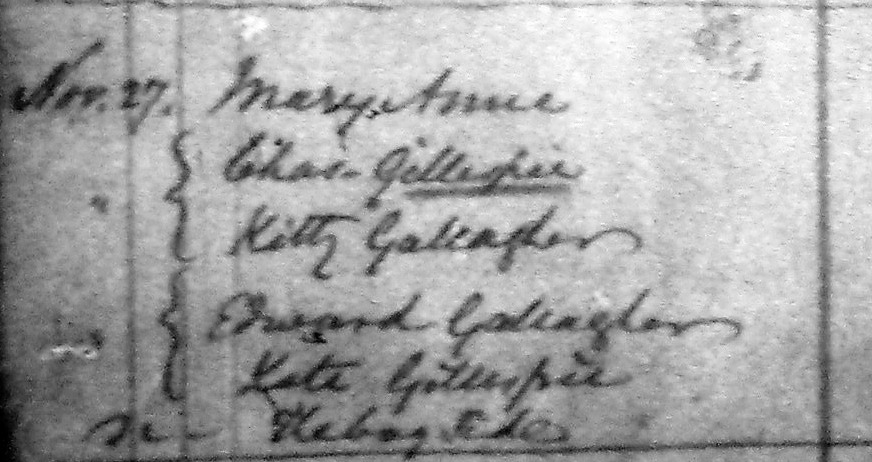 Nov. 27. Mary Anne
Chas. Gillespie
" Kitty Gallagher
Edward Gallagher
" Kate Gillespie